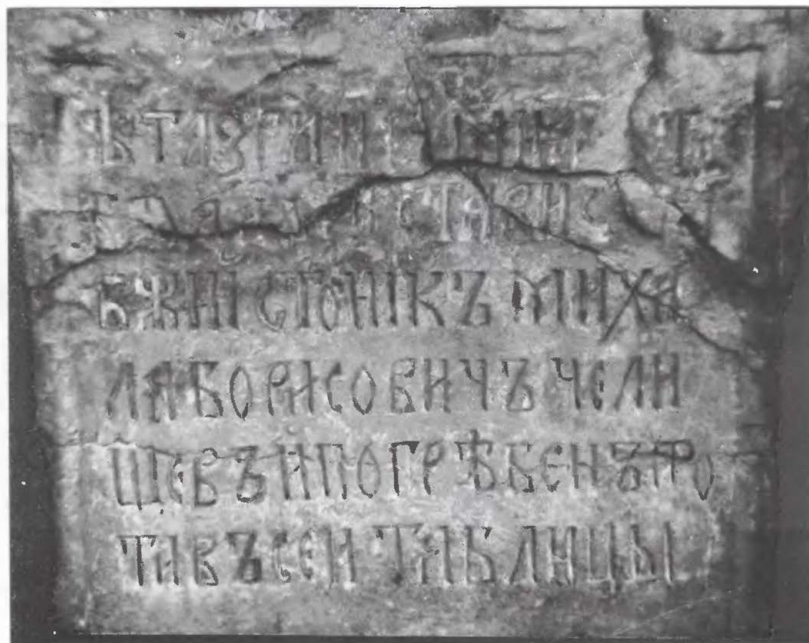 СТАВИС
БЖИI СТОНIКЪ МИХА
ЛА БОРИСОВИЧЪ ЧЕЛИ
ЩЕВЪ И ПОГРѢБЕНЪ ПРО
ТИВЪ СЕИ ТАБЛИЦЫ